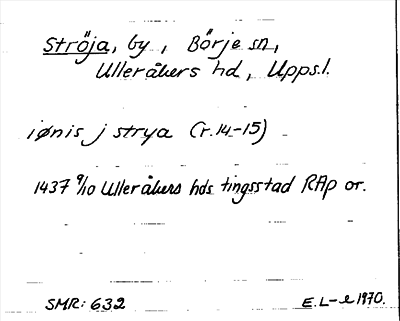 Ströja, by, Börje sn,
Ulleråkers hd, Upps.l.
iønis j strya (r.14-15)
1437 9/10 Ulleråkers hds tingsstad RAp or.
SMR: 632 E.L-e 1970.